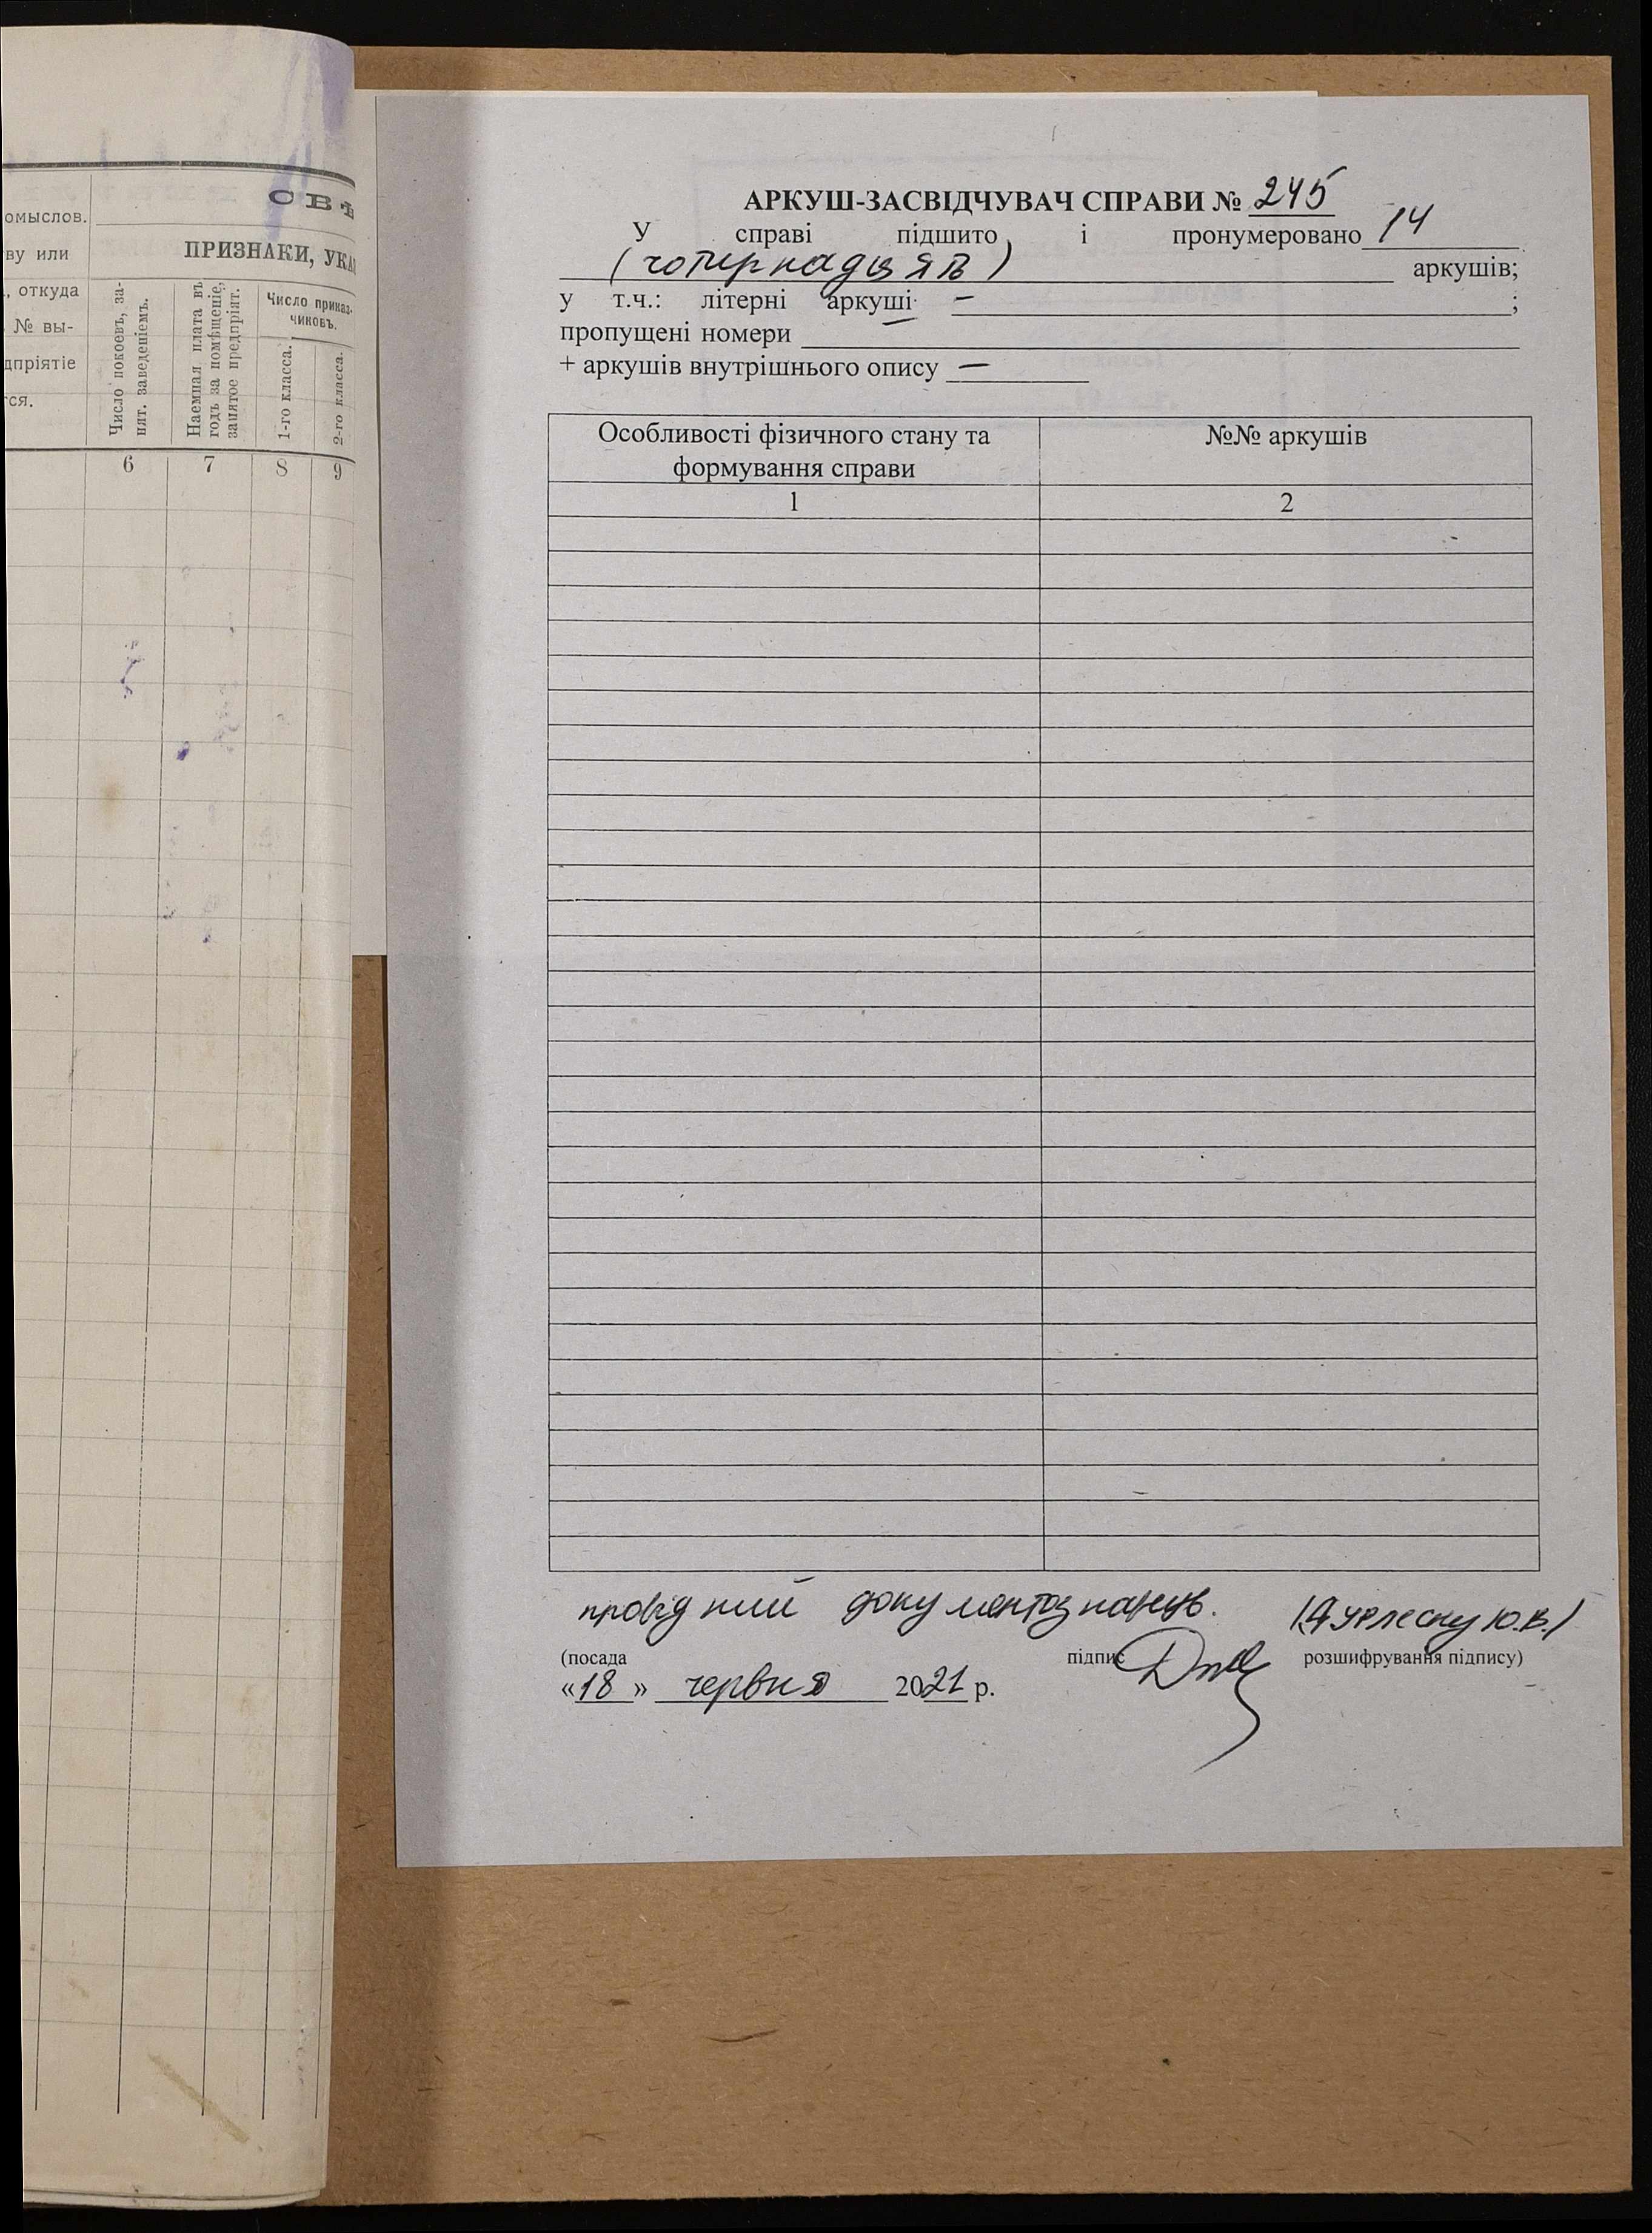 омыслов.
ву или
, откуда
№ вы-
дпріятіе
тся.
СВѢ
ПРИЗНАКИ, УКА
Число покоевъ, за-
нят. заведеніемъ.
Наемная плата въ
годъ за помѣщеніе,
занятое предпріят.
Число приказ-
чиковъ.
1-го класса.
2-го класса.
6 7 8 9
АРКУШ-ЗАСВІДЧУВАЧ СПРАВИ № 245
У справі підшито і пронумеровано 14
(чотирнадцять) аркушів;
у т.ч.: літерні аркуші – ;
пропущені номери –
+ аркушів внутрішнього опису –
Особливості фізичного стану та
формування справи
№№ аркушів
1 2
провідний документознавець.
(посада підпис розшифрування підпису)
«18» червня 2021 р.